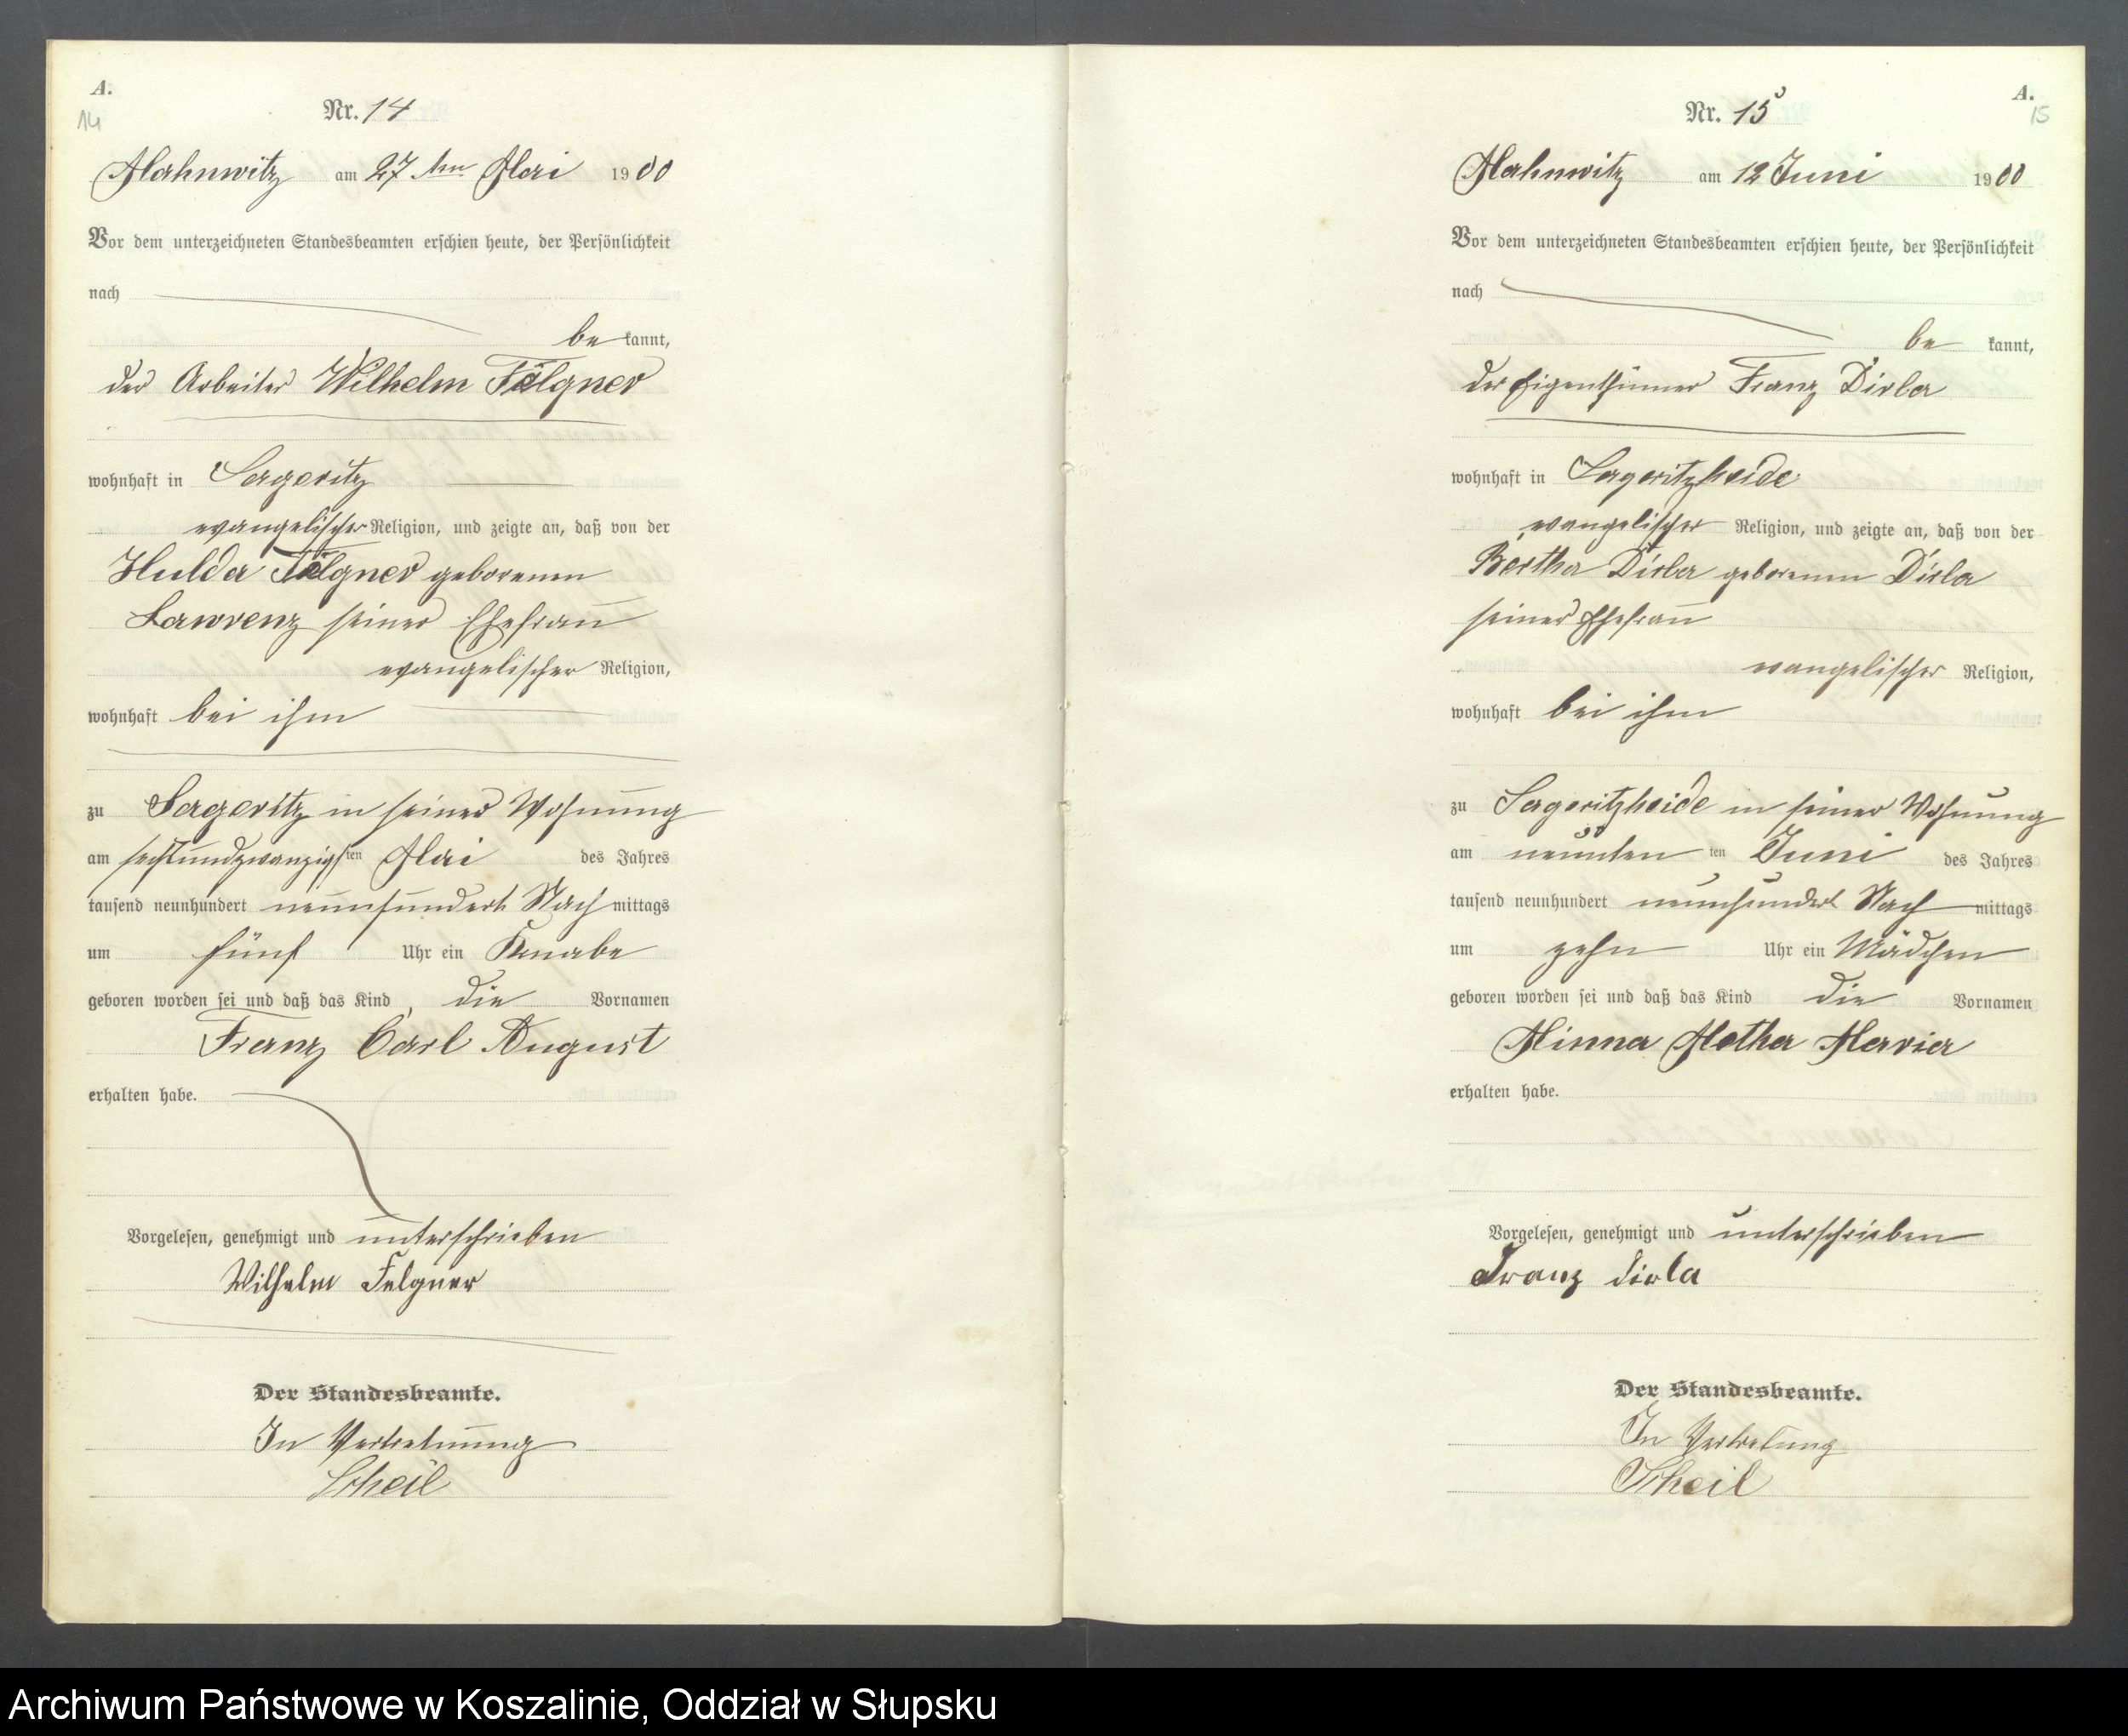 A.
14
Nr. 14
Mahnwitz am 27 ten Mai 1900
Vor dem unterzeichneten Standesbeamten erschien heute, der Persönlichkeit
nach
be kannt,
der Arbeiter Wilhelm Fölgner
wohnhaft in Sageritz
evangelischer Religion, und zeigte an, daß von der
Hulda Fölgner geborenen
Lawrenz seiner Ehefrau
evangelischer Religion,
wohnhaft bei ihm
zu Sageritz in seiner Wohnung
am sechsundzwanzigsten Mai des Jahres
tausend neunhundert neunhundert Nach mittags
um fünf Uhr ein Knabe
geboren worden sei und daß das Kind die Vornamen
Franz Carl August
erhalten habe.
Vorgelesen, genehmigt und unterschrieben
Wilhelm Felgner
Der Standesbeamte.
In Vertretung
Scheil
A.
15
Nr. 15
Mahnwitz am 12 Juni 1900
Vor dem unterzeichneten Standesbeamten erschien heute, der Persönlichkeit
nach
be kannt,
der Eigenthümer Franz Dirla
wohnhaft in Sageritzheide
evangelischer Religion, und zeigte an, daß von der
Bertha Dirla geborenen Dirla
seiner Ehefrau
evangelischer Religion,
wohnhaft bei ihm
zu Sageritzheide in seiner Wohnung
am neunten ten Juni des Jahres
tausend neunhundert neunhundert Nach mittags
um zehn Uhr ein Mädchen
geboren worden sei und daß das Kind die Vornamen
Minna Metha Maria
erhalten habe.
Vorgelesen, genehmigt und unterschrieben
Franz Dirla
Der Standesbeamte.
In Vertretung
Scheil
Archiwum Państwowe w Koszalinie, Oddział w Słupsku